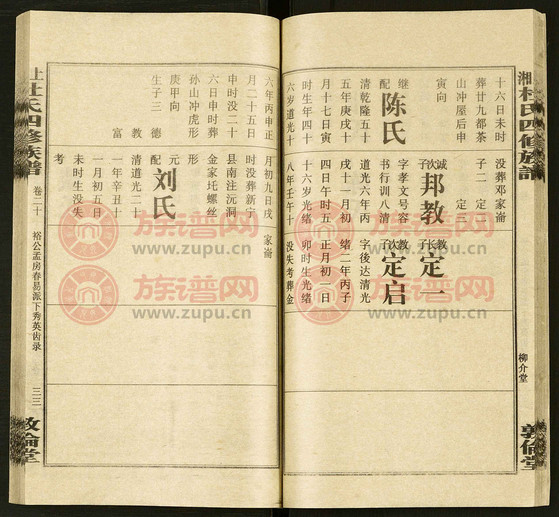 湘杜氏四修族譜
柳介堂
敦倫堂
十六日未时
葬廿九都茶
山冲屋后申
寅向
继配陈氏
清乾隆五十
月十七日寅
时生年四十
六岁道光十
六年丙申正
月二十五日
申时没二十
六日申时葬
孙山冲虎形
庚甲向
生子三 德
教
富
没葬邓家崙
子二 定一
定二
诚次子邦教
字孝文号容
书行训八清
道光六年丙
戌十一月初
四日午时五
十六岁光绪
八年壬午十
月初九日戌
时没葬新子
县南注沅洞
金家圫螺丝
形
元配刘氏
清道光二十
一年辛丑十
一月初五日
未时生没失
考
教长子定一
教次子定启
字後达清光
绪二年丙子
正月初一日
卯时生光绪
没失考葬金
家崙
上杜氏四修族譜
卷二十
裕公孟房春易派下秀英齿录
三三
敦倫堂
族谱网
www.zupu.cn
族谱网
www.zupu.cn